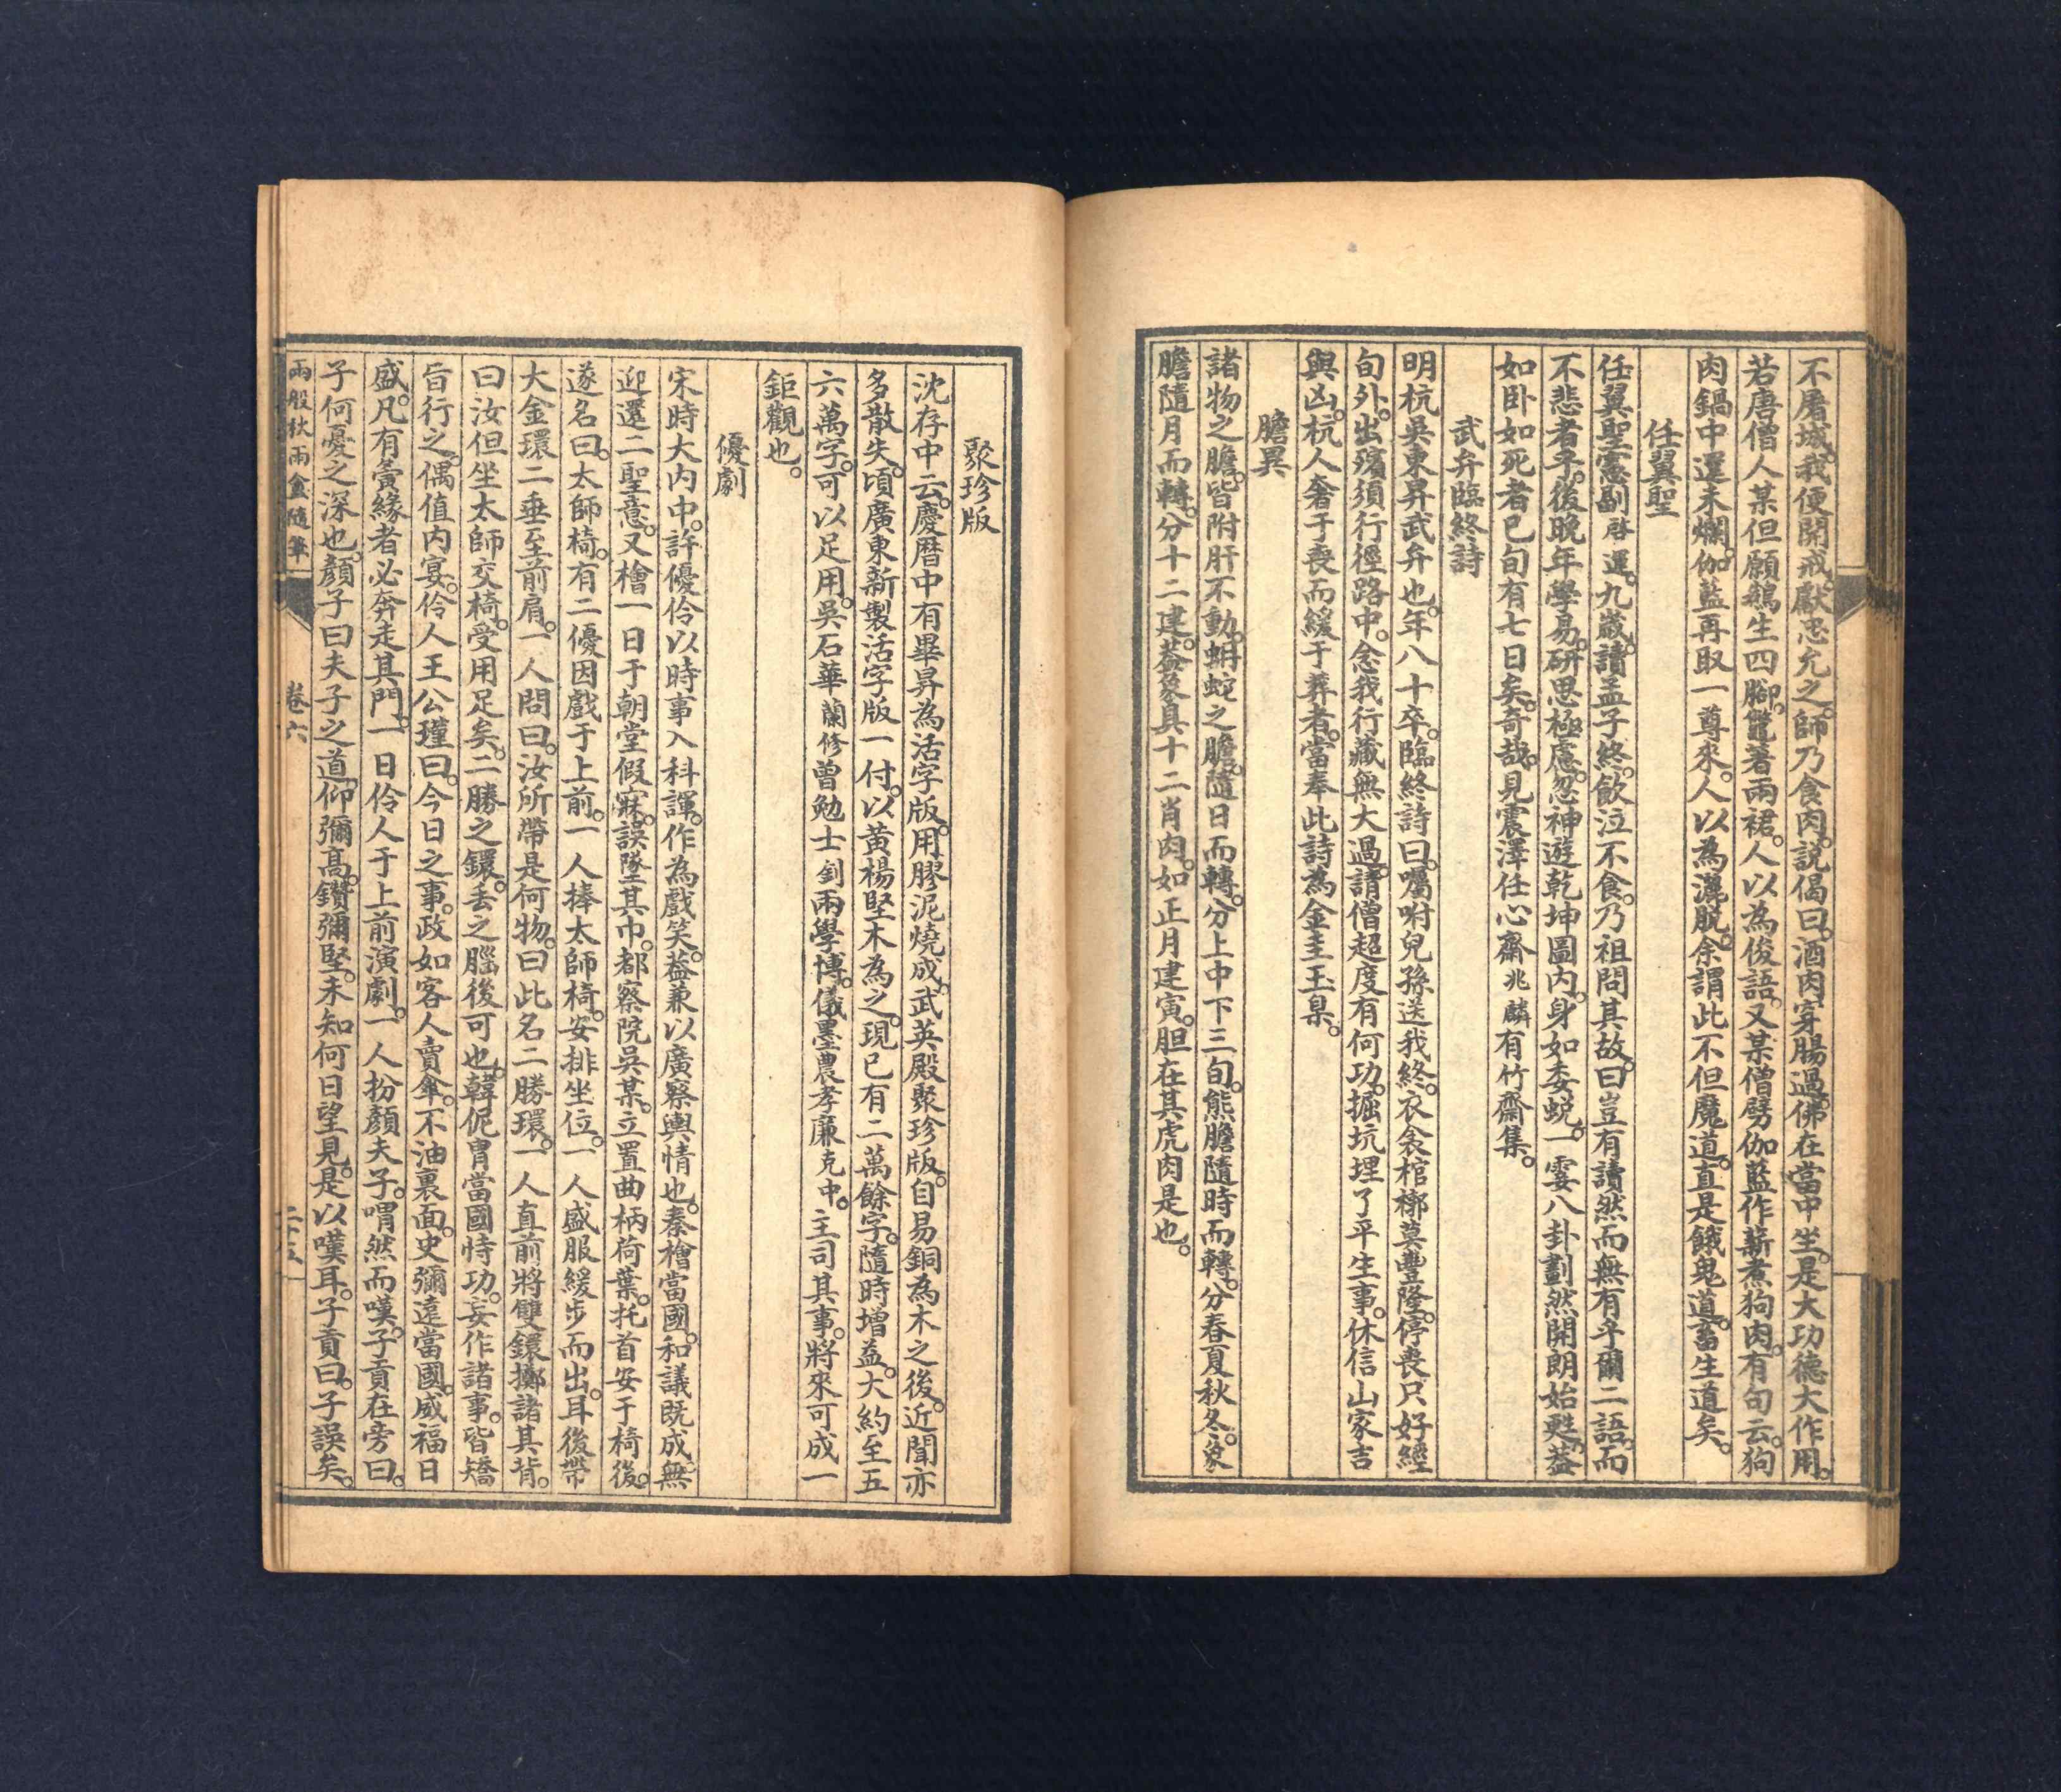 不屠城。我便開戒。獻忠允之。師乃食肉。說偈曰。酒肉穿腸過。佛在當中坐。是大功德大作用。
若唐僧人某但願鵝生四脚。鼈著兩裙。人以為俊語。又某僧劈伽藍作薪煮狗肉。有句云。狗
肉鍋中還未爛。伽藍再取一尊來。人以為灑脫。余謂此不但魔道。直是餓鬼道。畜生道矣。
任翼聖
任翼聖宮副啓運。九歲。讀孟子終。飲泣不食。乃祖問其故。曰豈有讀然而無有乎爾二語。而
不悲者乎。後晚年學易。研思極慮。忽神遊乾坤圖內。身如委蛻。一霎八卦劃然開朗始甦。葢
如卧如死者已旬有七日矣。奇哉。見震澤任心齋兆麟有竹齋集。
武弁臨終詩
明杭吳東昇武弁也。年八十卒。臨終詩曰。囑咐兒孫送我終。衣衾棺槨莫豐隆。停喪只好經
旬外。出殯須行徑路中。念我行藏無大過。請僧超度有何功。掘坑埋了平生事。休信山家吉
與凶。杭人奢于喪而緩于葬者。當奉此詩為金圭玉臬。
膽異
諸物之膽。皆附肝不動。蚺蛇之膽。隨日而轉。分上中下三旬。熊膽隨時而轉。分春夏秋冬。象
膽隨月而轉。分十二建。葢象具十二肖肉。如正月建寅。胆在其虎肉是也。
聚珍版
沈存中云。慶曆中有畢昇為活字版。用膠泥燒成。武英殿聚珍版。自易銅為木之後。近聞亦
多散失。頃廣東新製活字版一付。以黃楊堅木為之。現已有二萬餘字。隨時增益。大約至五
六萬字。可以足用。吳石華蘭修曾勉士釗兩學博。儀墨農孝廉克中。主司其事。將來可成一
鉅觀也。
優劇
宋時大內中。許優伶以時事入科諢。作為戲笑。葢兼以廣察輿情也。秦檜當國。和議既成。無
迎還二聖意。又檜一日于朝堂假寐。誤墜其巾。都察院吳某。立置曲柄荷葉。托首安于椅後。
遂名曰。太師椅。有二優因戲于上前。一人捧太師椅。安排坐位。一人盛服緩步而出。耳後帶
大金環二垂至前肩。一人問曰。汝所帶是何物。曰此名二勝環。一人直前將雙鐶擲諸其背。
曰汝但坐太師交椅。受用足矣。二勝之鐶。丢之腦後可也。韓侂冑當國恃功。妄作諸事。皆矯
旨行之。偶值內宴。伶人王公瑾曰。今日之事。政如客人賣傘。不油裏面。史彌遠當國。威福日
盛。凡有夤緣者必奔走其門。一日伶人于上前演劇。一人扮顏夫子。喟然而嘆。子貢在旁曰。
子何憂之深也。顏子曰夫子之道。仰彌高。鑽彌堅。未知何日望見。是以嘆耳。子貢曰。子誤矣。
兩般秋雨盦隨筆
卷六
二十五